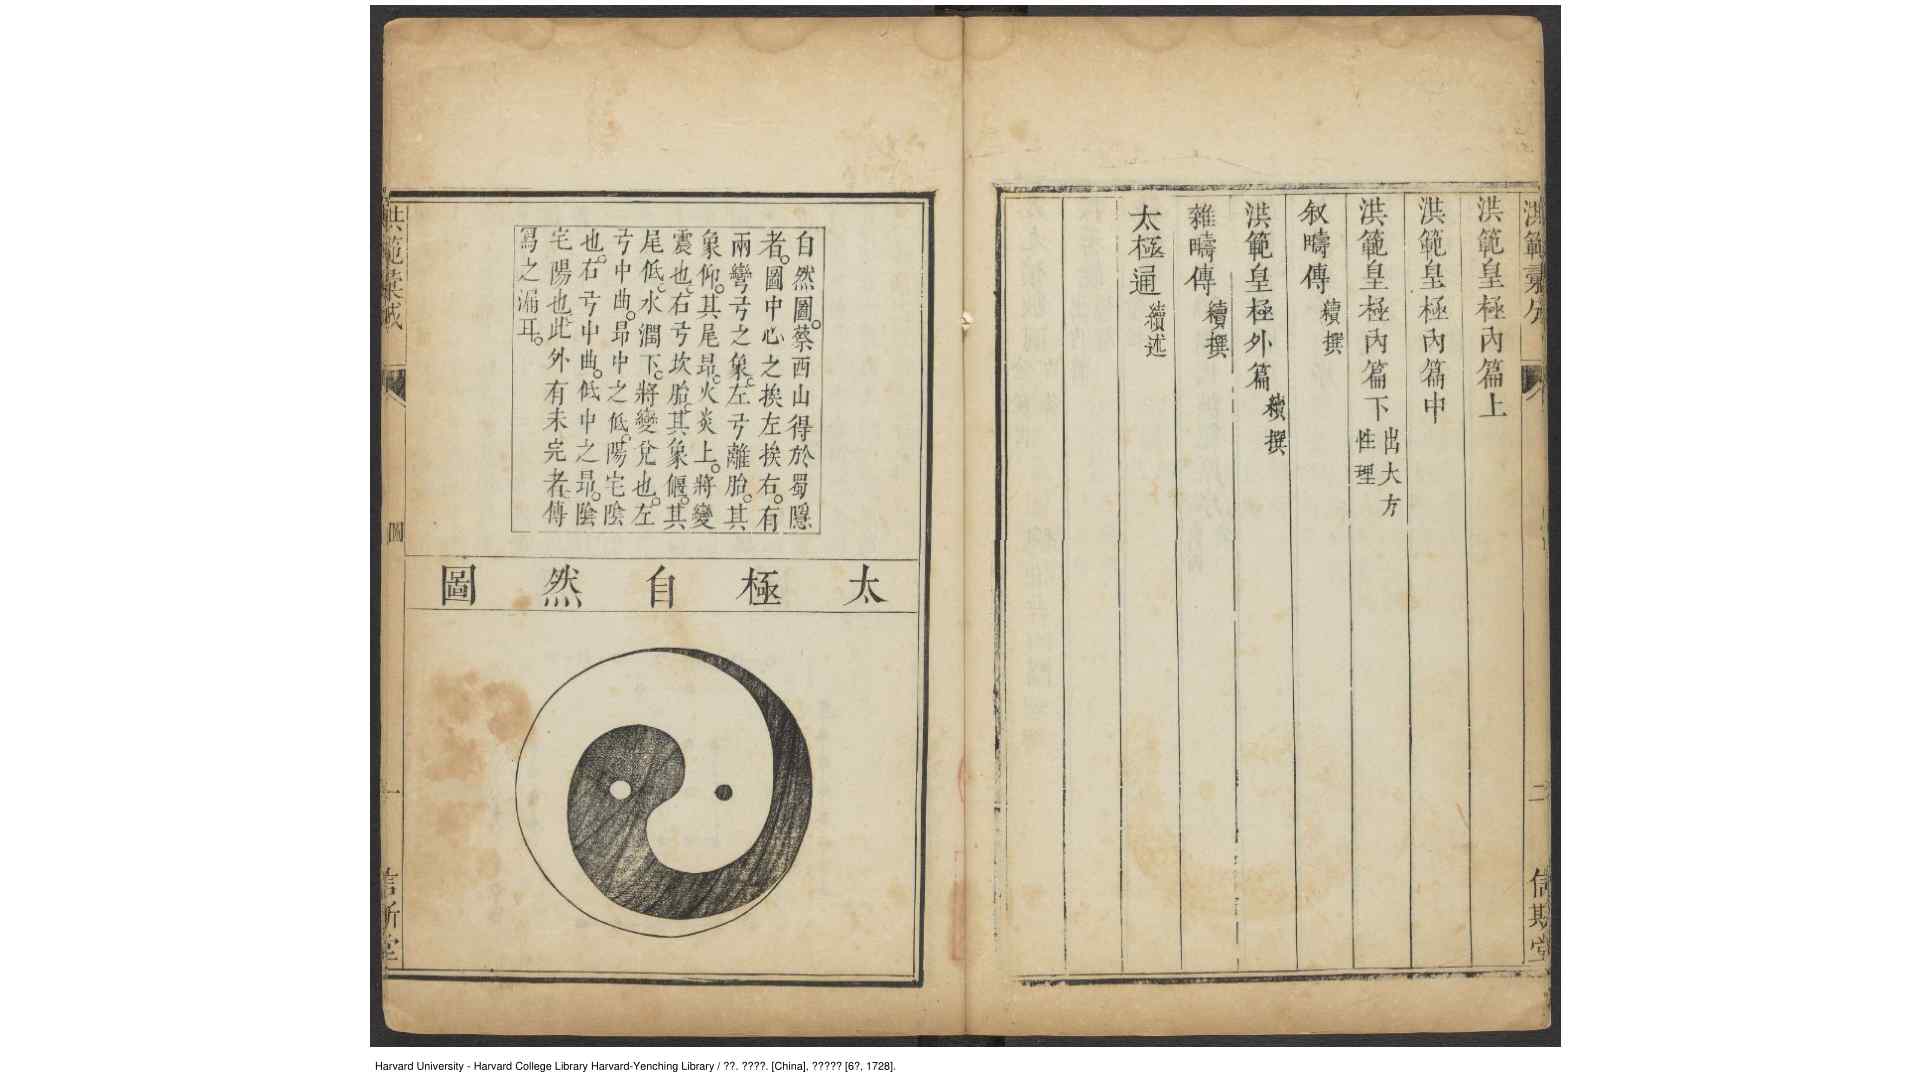 洪範皇極內篇上
洪範皇極內篇中
洪範皇極內篇下 出大方
性理
叙疇傳 續撰
洪範皇極外篇 續撰
雜疇傳 續撰
太極通 續述
二
信斯堂
自然圖。蔡西山得於蜀隱
者。圖中心之挨左挨右。有
兩彎亐之象。左亐離胎。其
象仰。其尾昻。火炎上。將變
震也。右亐坎胎。其象偃。其
尾低。水潤下。將變兌也。左
亐中曲。昻中之低。陽宅陰
也。右亐中曲。低中之昻。陰
宅陽也。此外有未完者。傳
寫之漏耳。
太極自然圖
圖
一
信斯堂
Harvard University - Harvard College Library Harvard-Yenching Library / ??. ????. [China], ????? [6?, 1728].